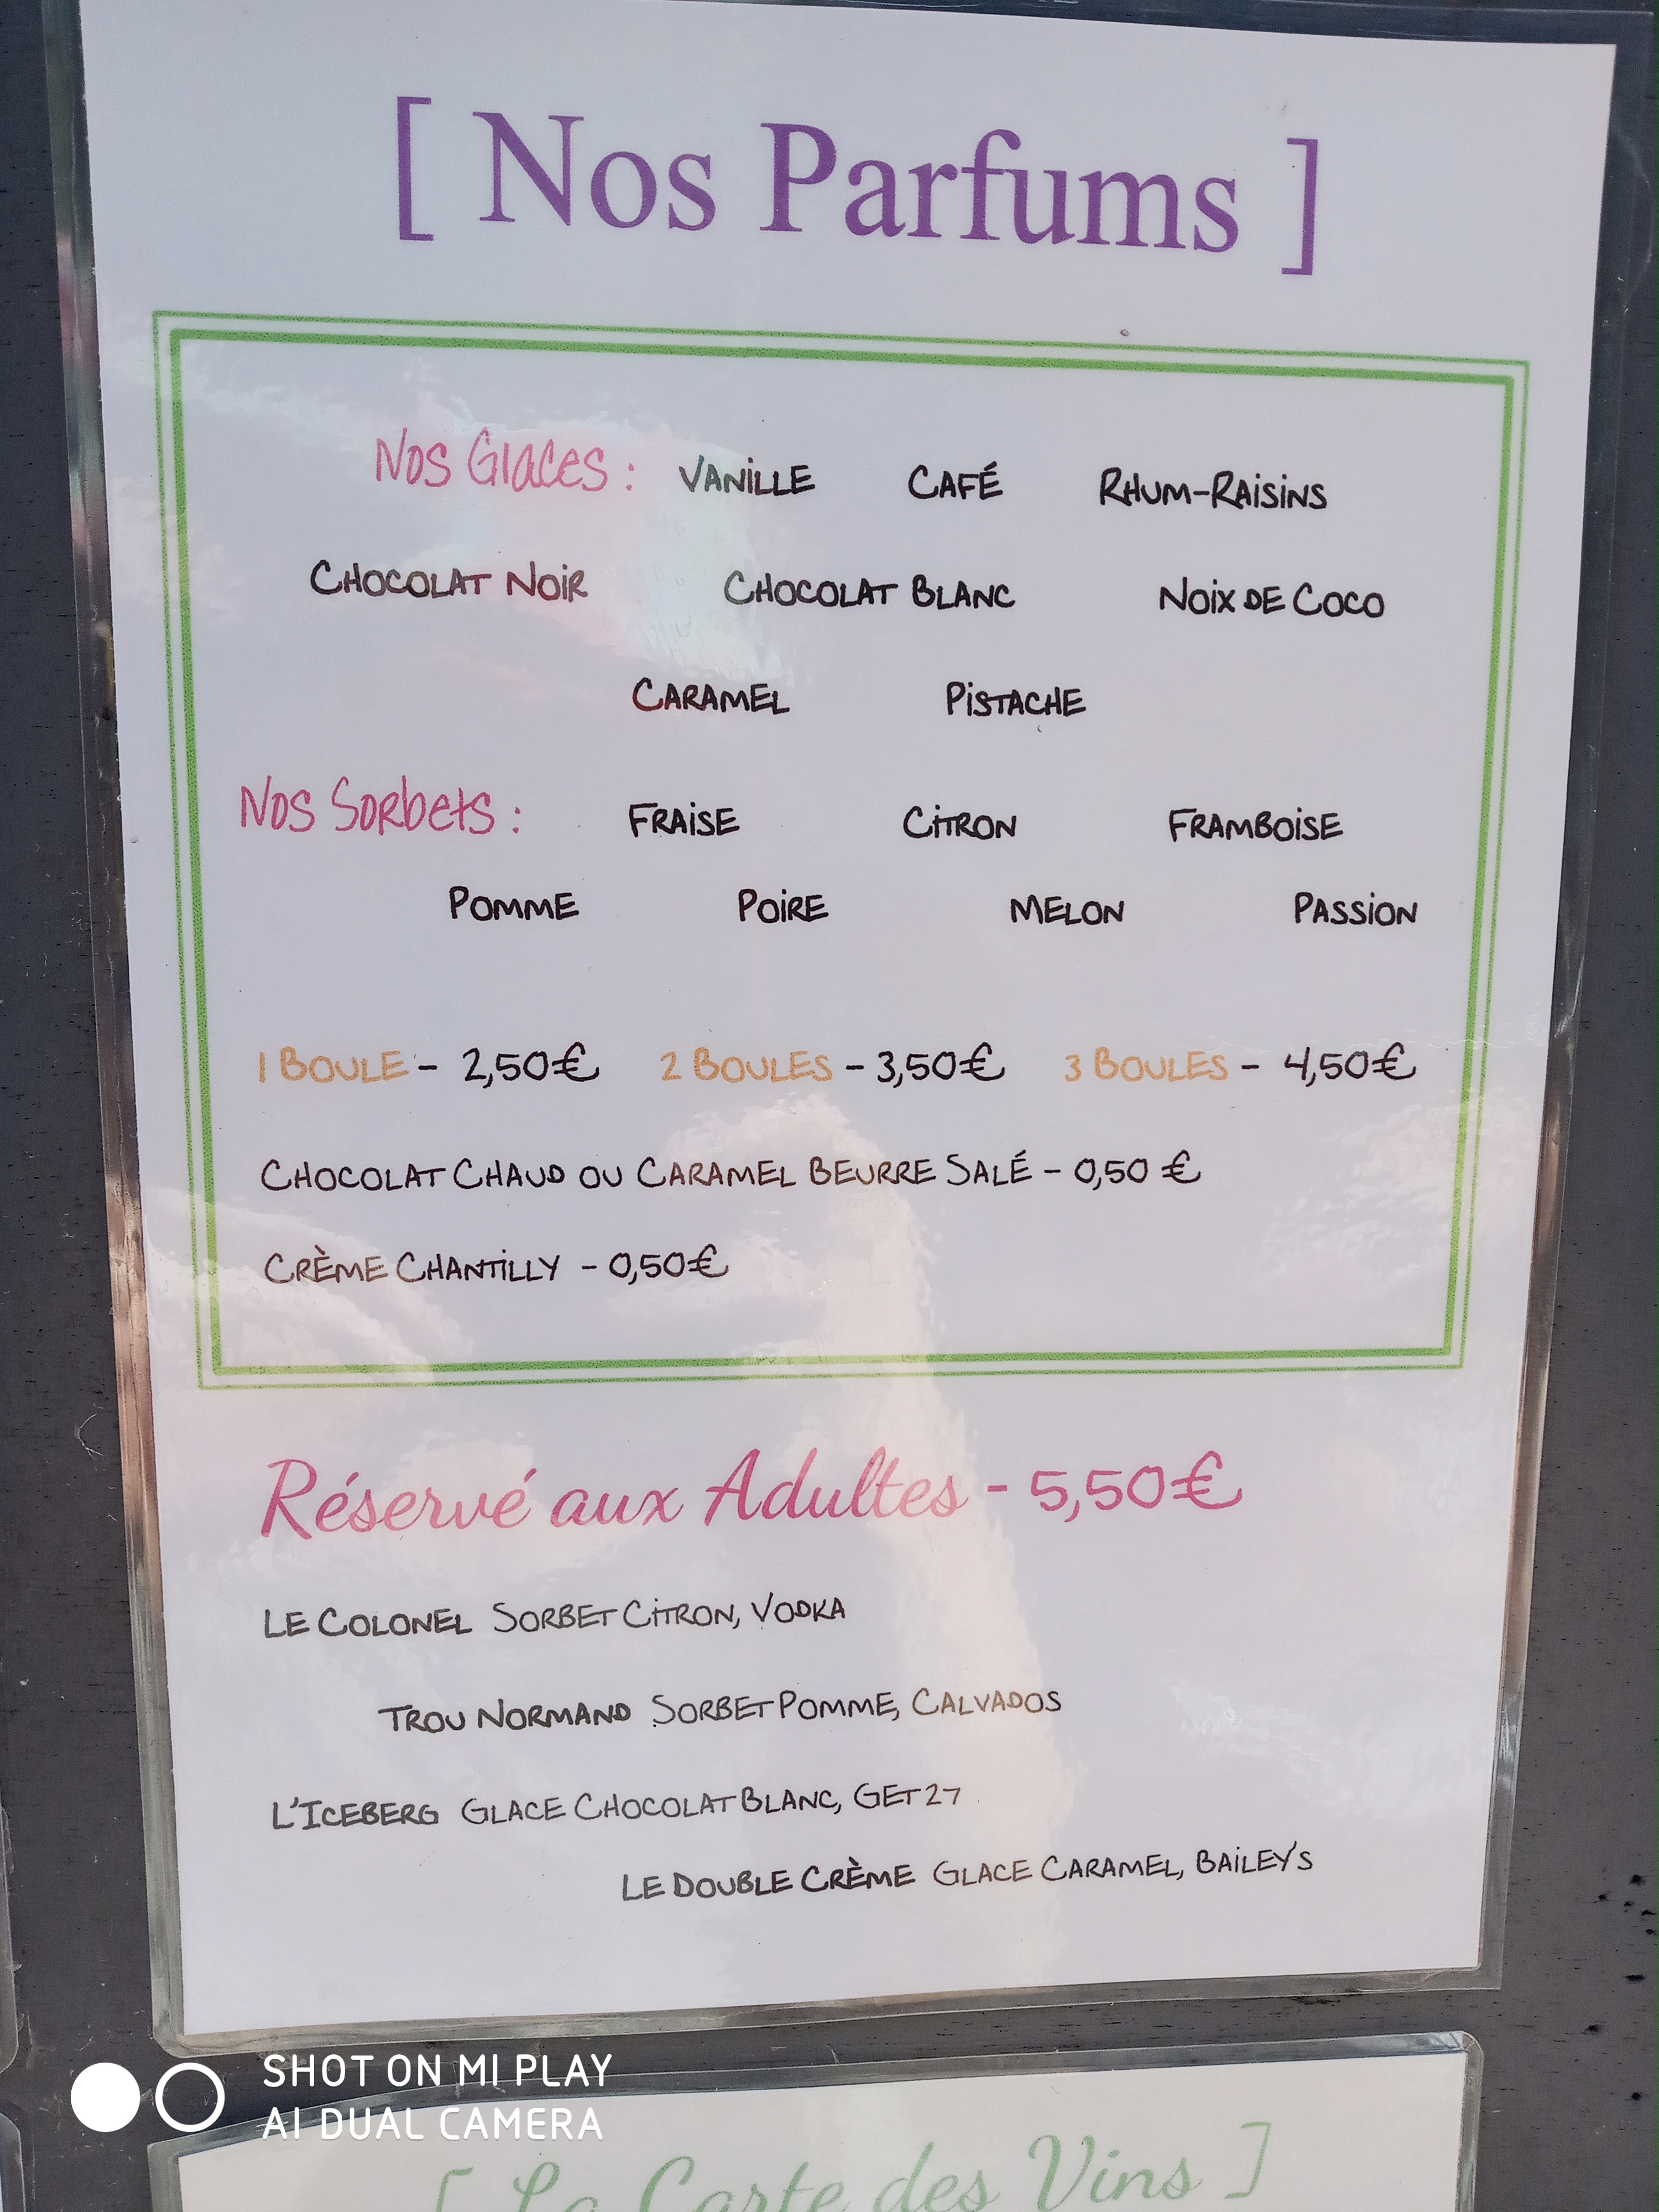 [ Nos Parfums ]
Nos Glaces : VANILLE CAFÉ RHUM-RAISINS
CHOCOLAT NOIR CHOCOLAT BLANC NOIX DE COCO
CARAMEL PISTACHE
Nos Sorbets : FRAISE CITRON FRAMBOISE
POMME POIRE MELON PASSION
1 BOULE - 2,50€ 2 BOULES - 3,50€ 3 BOULES - 4,50€
CHOCOLAT CHAUD OU CARAMEL BEURRE SALÉ - 0,50 €
CRÈME CHANTILLY - 0,50€
Réservé aux Adultes - 5,50€
LE COLONEL SORBET CITRON, VODKA
TROU NORMAND SORBET POMME, CALVADOS
L'ICEBERG GLACE CHOCOLAT BLANC, GET 27
LE DOUBLE CRÈME GLACE CARAMEL, BAILEY'S
SHOT ON MI PLAY
AI DUAL CAMERA
[ La Carte des Vins ]